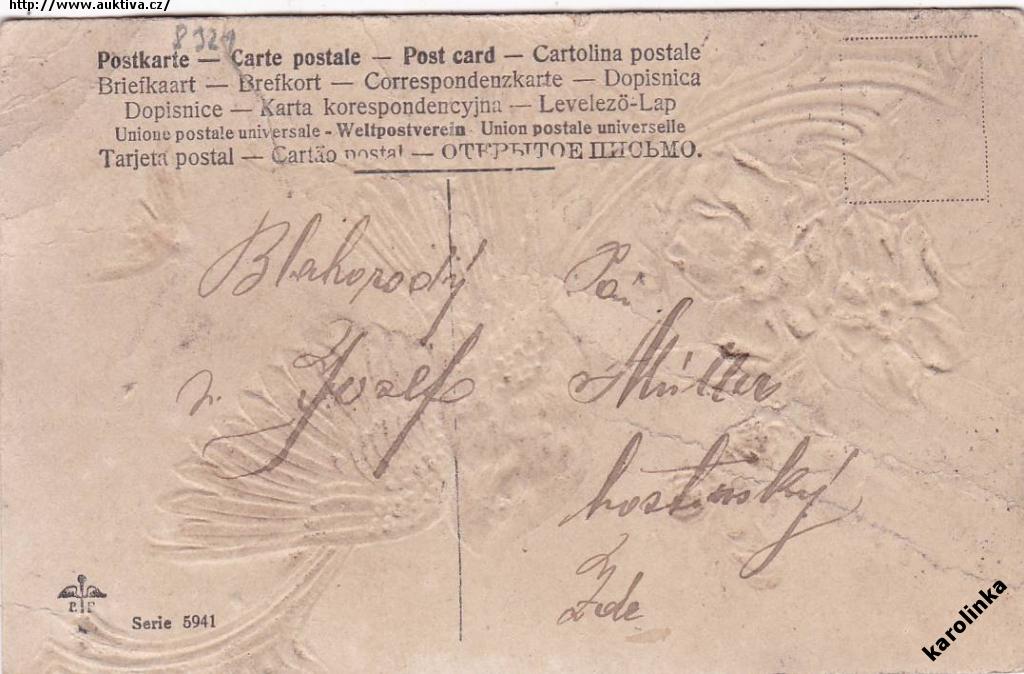 http://www.auktiva.cz/
8329
Postkarte — Carte postale — Post card — Cartolina postale
Briefkaart — Brefkort — Correspondenzkarte — Dopisnica
Dopisnice — Karta korespondencyjna — Levelező-Lap
Unione postale universale - Weltpostverein Union postale universelle
Tarjeta postal — Cartão postal — ОТКРЫТОЕ ПИСЬМО.
Blahorodý Pán
Jozef Müller
hostinský
Zde
Serie 5941
karolinka